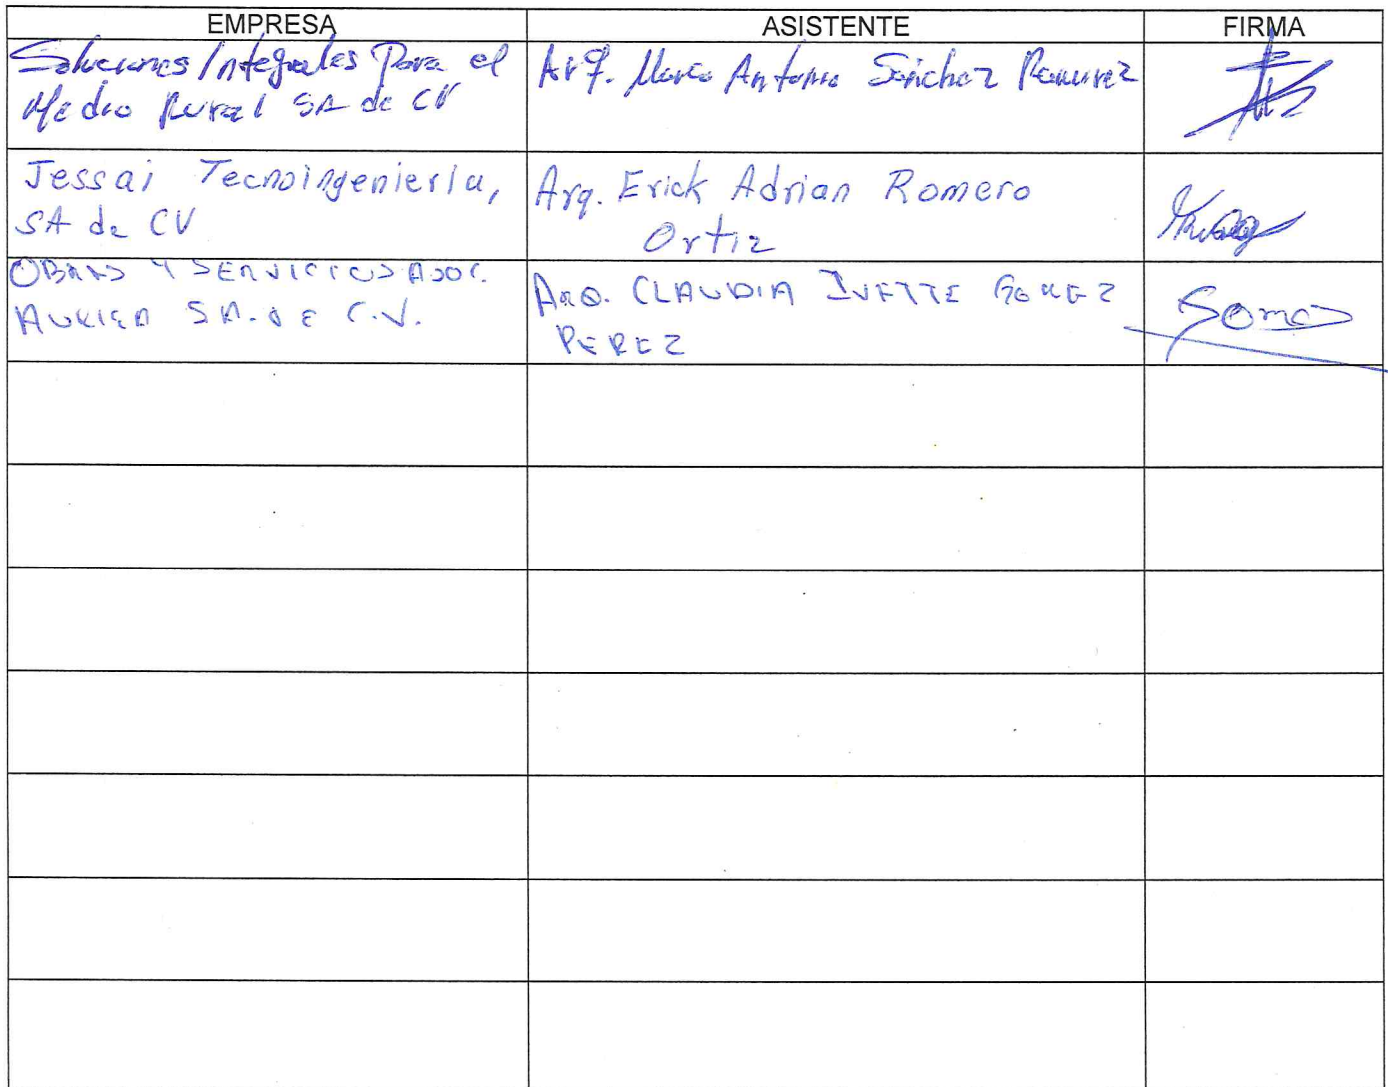 EMPRESA ASISTENTE FIRMA
Soluciones Integrales Para el
Medio Rural SA de CV
Arq. Marco Antonio Sánchez Ramirez
Jessai Tecnoingenieria,
SA de CV
Arq. Erick Adrian Romero
Ortiz
OBRAS Y SERVICIOS ASOC.
S A. DE C.V.
ARQ. CLAUDIA IVETTE GOMEZ
PEREZ